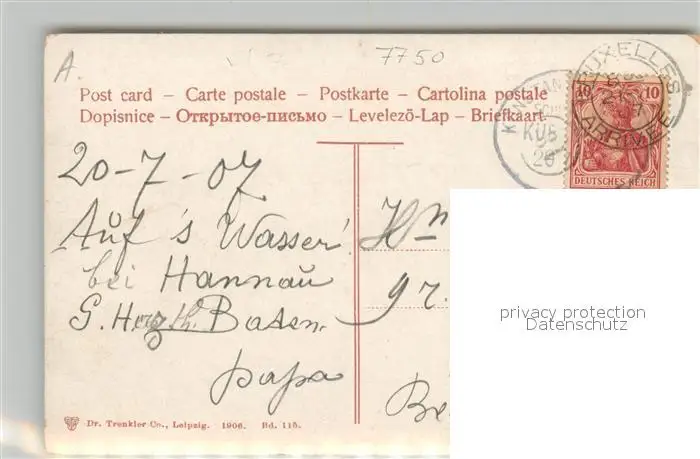 A.
7750
Post card – Carte postale – Postkarte – Cartolina postale
Dopisnice – Открытое-письмо – Levelezö-Lap – Briefkaart.
KUB
20
BRUXELLES
ARRIVÉE
10 10
DEUTSCHES REICH
20-7-07
Auf 's Wasser!
bei Hannau
G. Herzth. Baden.
papa
Hn
97.
privacy protection
Datenschutz
Dr. Trenkler Co., Leipzig. 1906. Bd. 115.